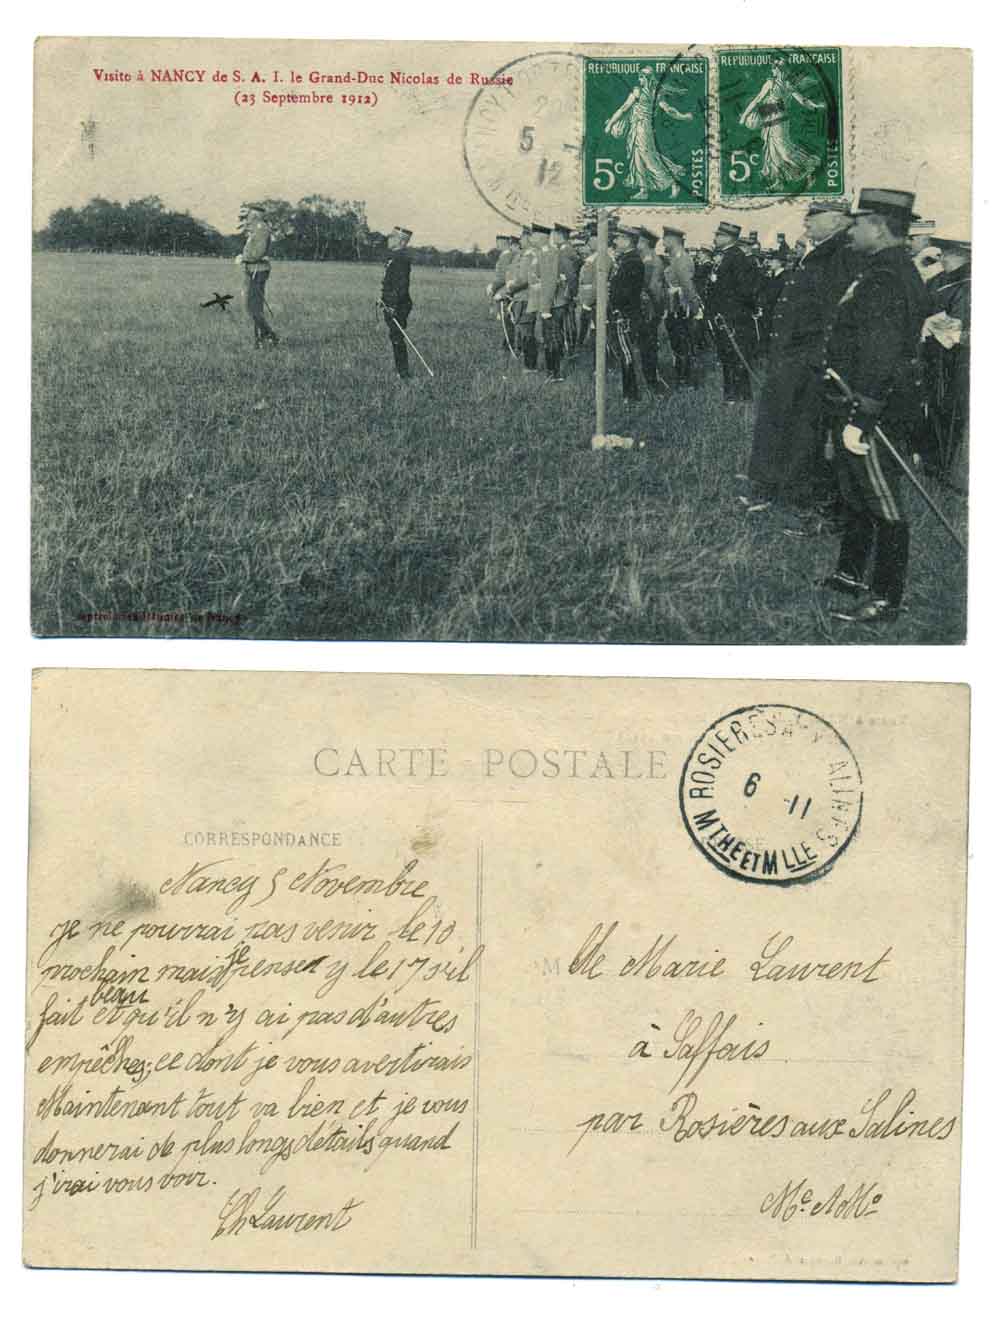 Visite à NANCY de S. A. I. le Grand-Duc Nicolas de Russie
(23 Septembre 1912)
REPUBLIQUE FRANÇAISE
5c
POSTES
REPUBLIQUE FRANÇAISE
5c
POSTES
5
12
CARTE POSTALE
CORRESPONDANCE
ROSIERES ALINES
6 11
MTHE ET MLLE
Nancy 5 Novembre
je ne pourrai pas venir le 10
prochain mais je penser y le 17 s'il
fait beau et qu'il n'y ai pas d'autres
empêches; ce dont je vous avertirais
Maintenant tout va bien et je vous
donnerai de plus longs détails quand
j'irai vous voir.
Ch Laurent
M
Marie Laurent
à Saffais
par Rosières aux Salines
Mthe &amp; Mlle